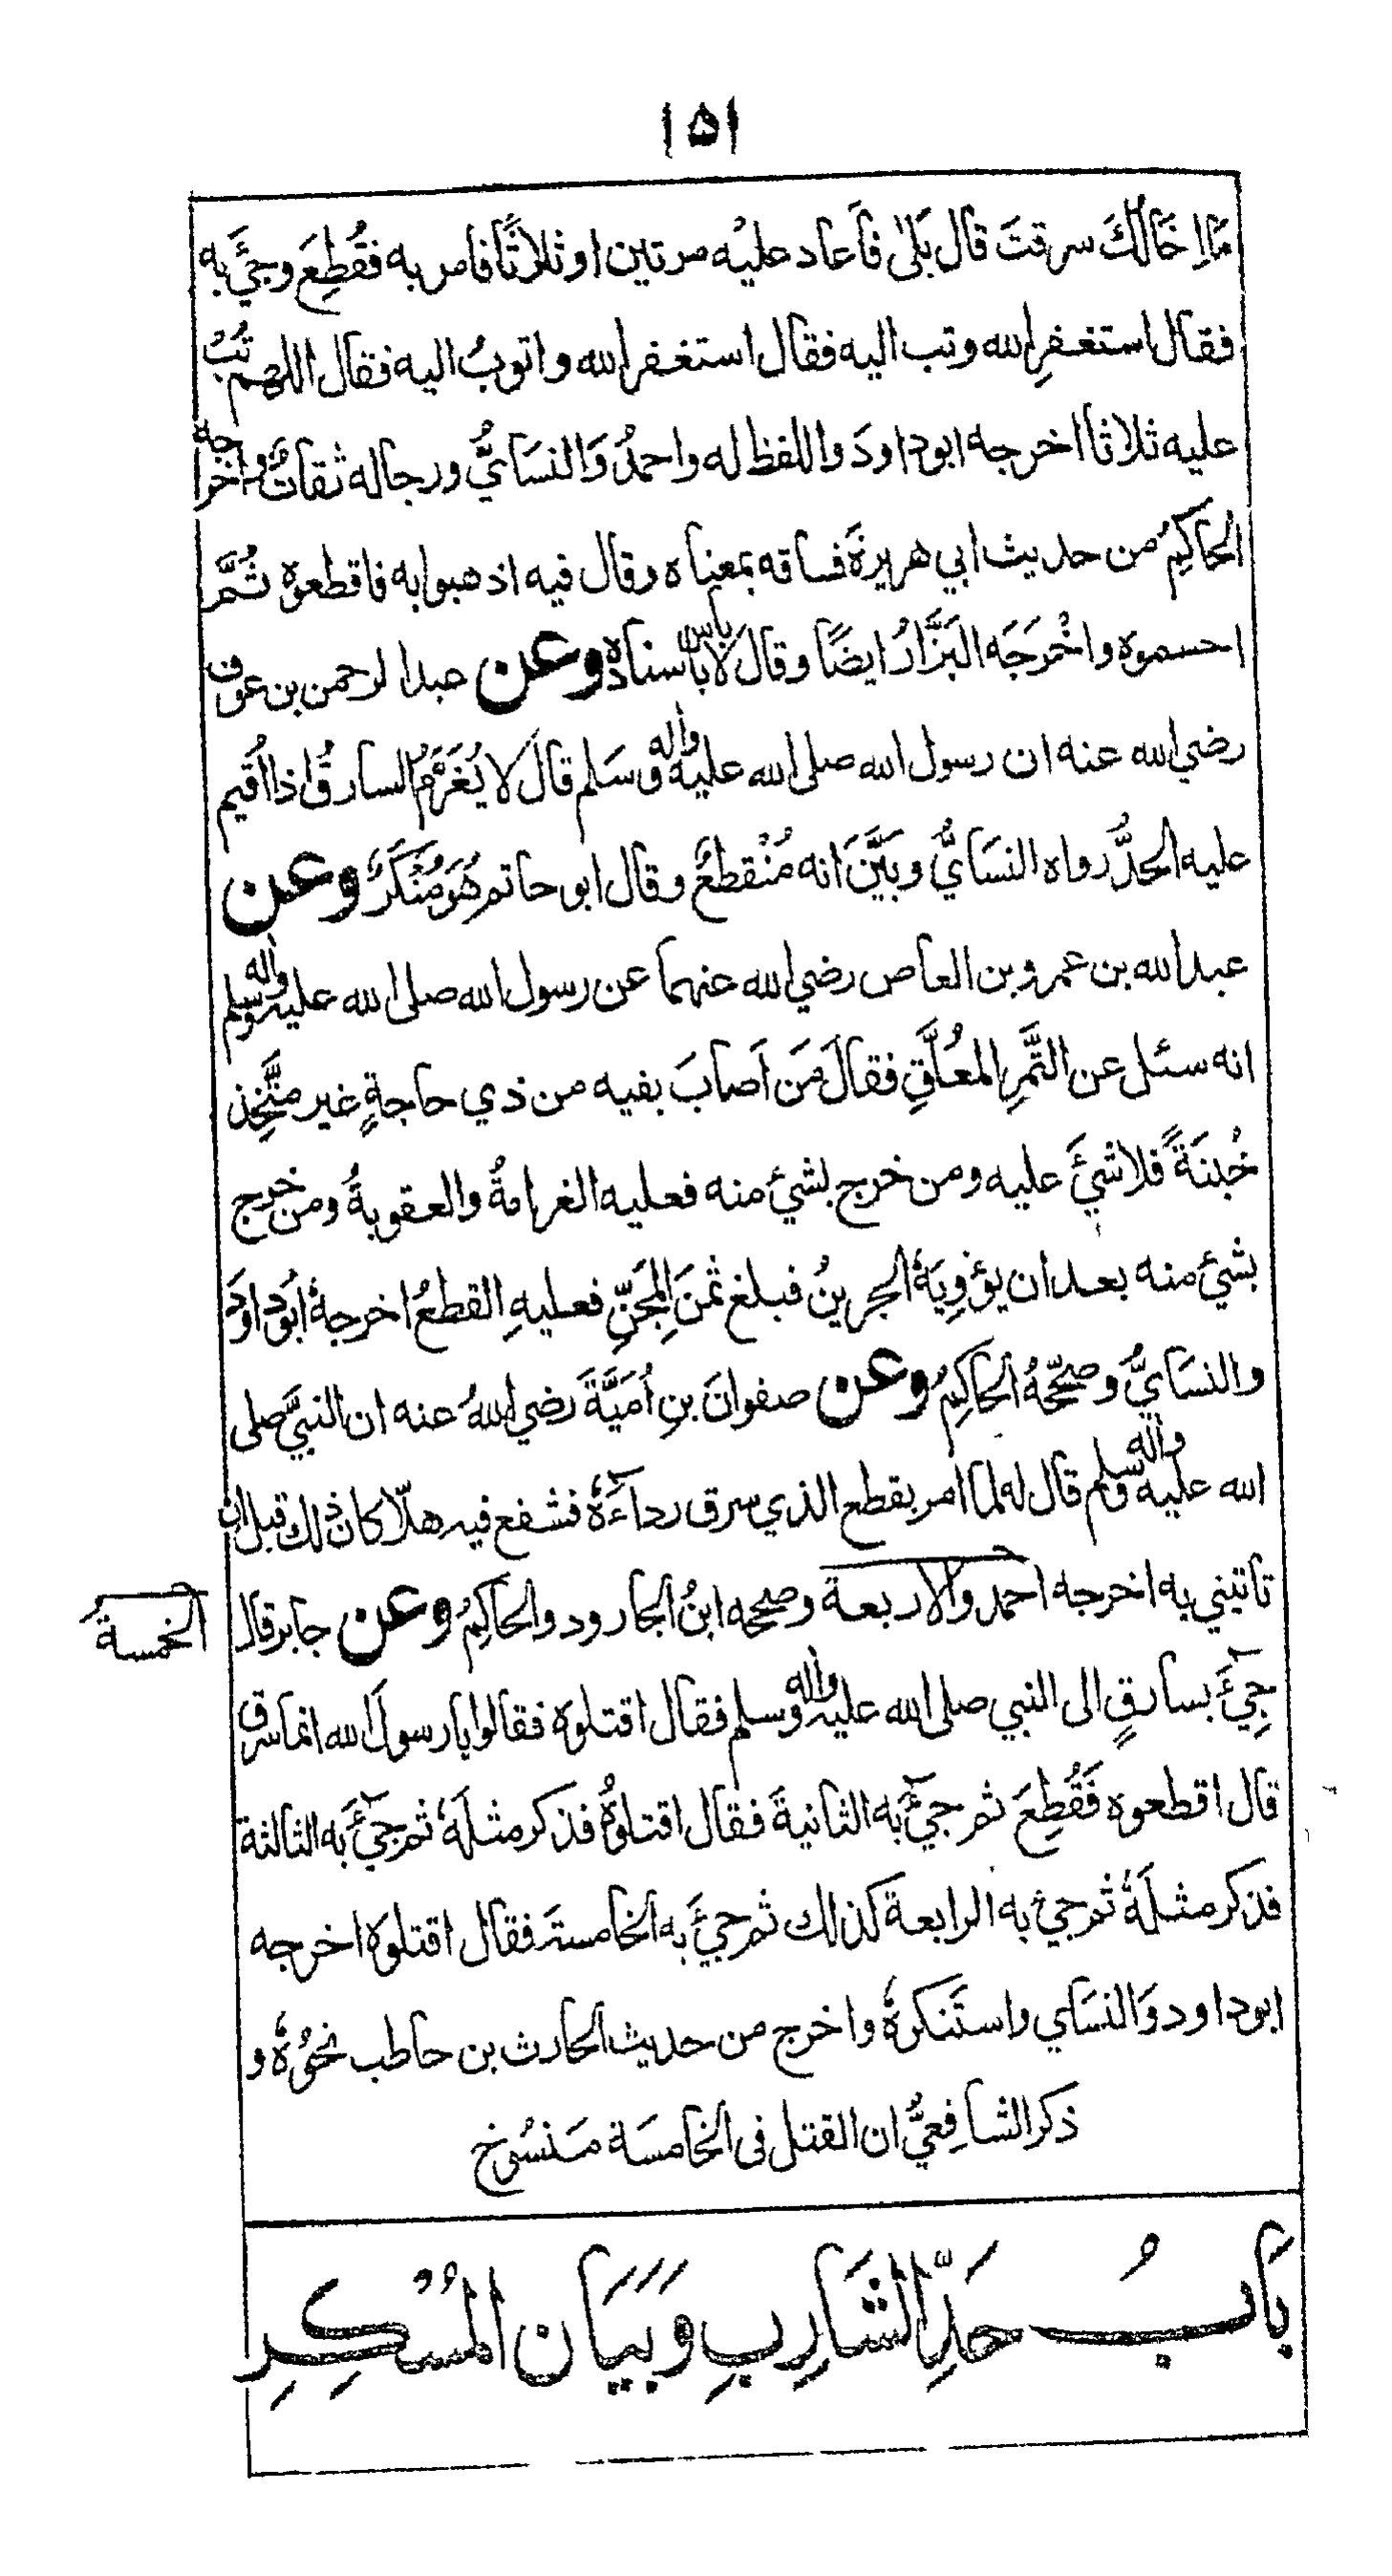 ١٥١
مَا اِخَالُكَ سرقتَ قال بَلٰى فَاَعاد عليْه مرتين او ثلاثًا فامر به فقُطِعَ وجِئَ به
فقال استغفرِ الله وتب اليه فقال استغفر الله واتوبُ اليه فقال اللهم تُبْ
عليه ثلاثا اخرجه ابوداودَ واللفظ له واحمدُ وَالنسَائُّ ورجاله ثقاتٌ واخرجه
الحاكِمُ من حديث ابي هريرةَ فساقه بمعناه وقال فيه اذهبوا به فاقطعوه ثُمَّ
احسموه واخْرَجَه البَزَّارُ ايضًا وقالَ لَا باس باسناده وعن عبد الرحمن بن عوف
رضي الله عنه ان رسول الله صلى الله عليه واٰله وسَلم قالَ لا يُغَرَّمُ السارقُ اذا اُقيم
عليه الحدُّ رواه النسَائُّ وبَيَّنَ انه مُنْقطعٌ وقال ابو حاتم هُوَ مُنْكَرٌ وعن
عبد الله بن عمرو بن العاص رضي الله عنهما عن رسول الله صلى الله عليه واٰله وسلم
انه سئل عن التَّمرِ المعُلَّقِ فقالَ مَن اَصابَ بفيه من ذي حاجةٍ غير متَّخِذ
خُبنَةً فلا شئَ عليه ومن خرج بشئ منه فعليه الغرامةُ والعقوبةُ ومن خرج
بشئ منه بعد ان يؤوِيَهُ الجرينُ فبلغ ثمنَ المِجَنِّ فعليهِ القطعُ اخرجهُ ابُوداودَ
والنسَائُّ وصحّحهُ الحاكِمُ وعن صفوانَ بنِ اُمَيَّةَ رضي اللهُ عنه ان النبيَّ صلى
الله عليه واٰله وسلم قال له لما امر بقطع الذي سرق رداءَهُ فشفع فيه هلّا كان ذلك قبل ان
تاتيني به اخرجه احمد والاربعة وصححه ابنُ الجارود والحاكِمُ وعن جابر قال
الخمسةُ
جِئَ بسارقٍ الى النبي صلى الله عليه واٰله وسلم فقال اقتلوه فقالوا يا رسولَ الله انما سرق
قال اقطعوه فَقُطِعَ ثم جئَ به الثانيةَ فقال اقتلوهُ فذكر مثلَهُ ثم جئَ به الثالثة
فذكر مثلَهُ ثم جئ به الرابعة كذلك ثم جئَ به الخامسة فقال اقتلوه اخرجه
ابوداود وَالنسَاي واستَنكرهُ واخرج من حديث الحارث بن حاطب نحوُهُ و
ذكر الشافِعيُّ ان القتل فى الخامسَة مَنسُوخ
بَابُ حَدِّ الشَارِبِ وَبَيَان المُسْكِرِ